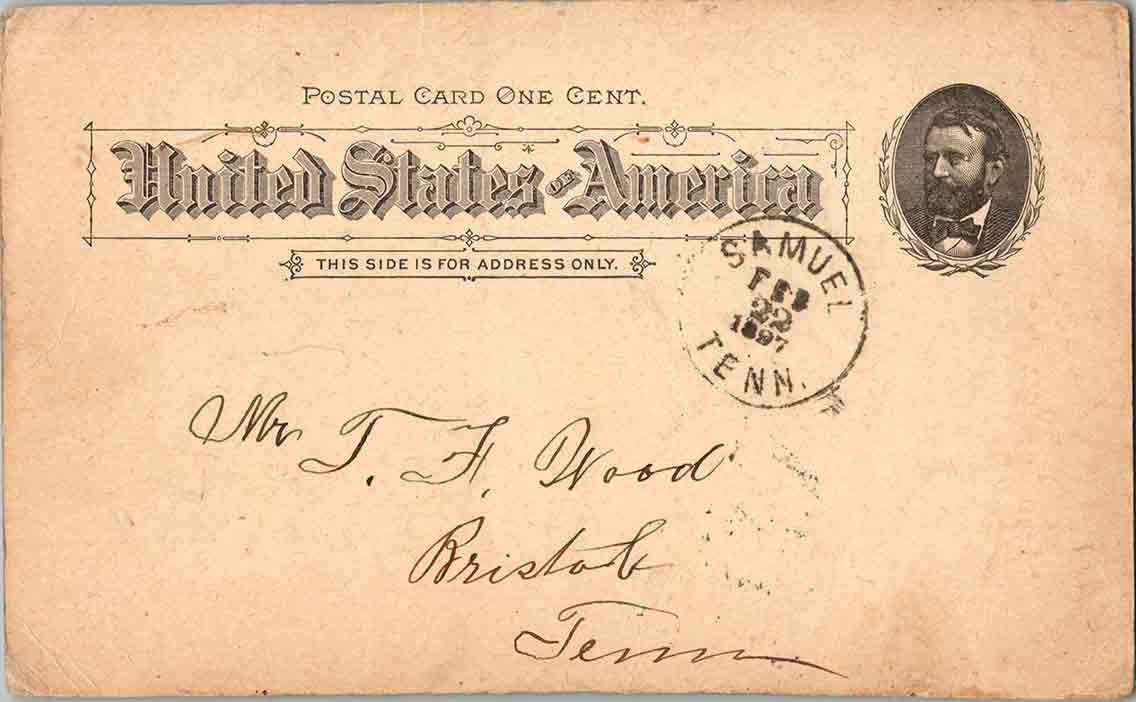 POSTAL CARD ONE CENT.
United States of America
THIS SIDE IS FOR ADDRESS ONLY.
SAMUEL
FEB
22
1897
TENN.
Mr T. F. Wood
Bristol
Tenn